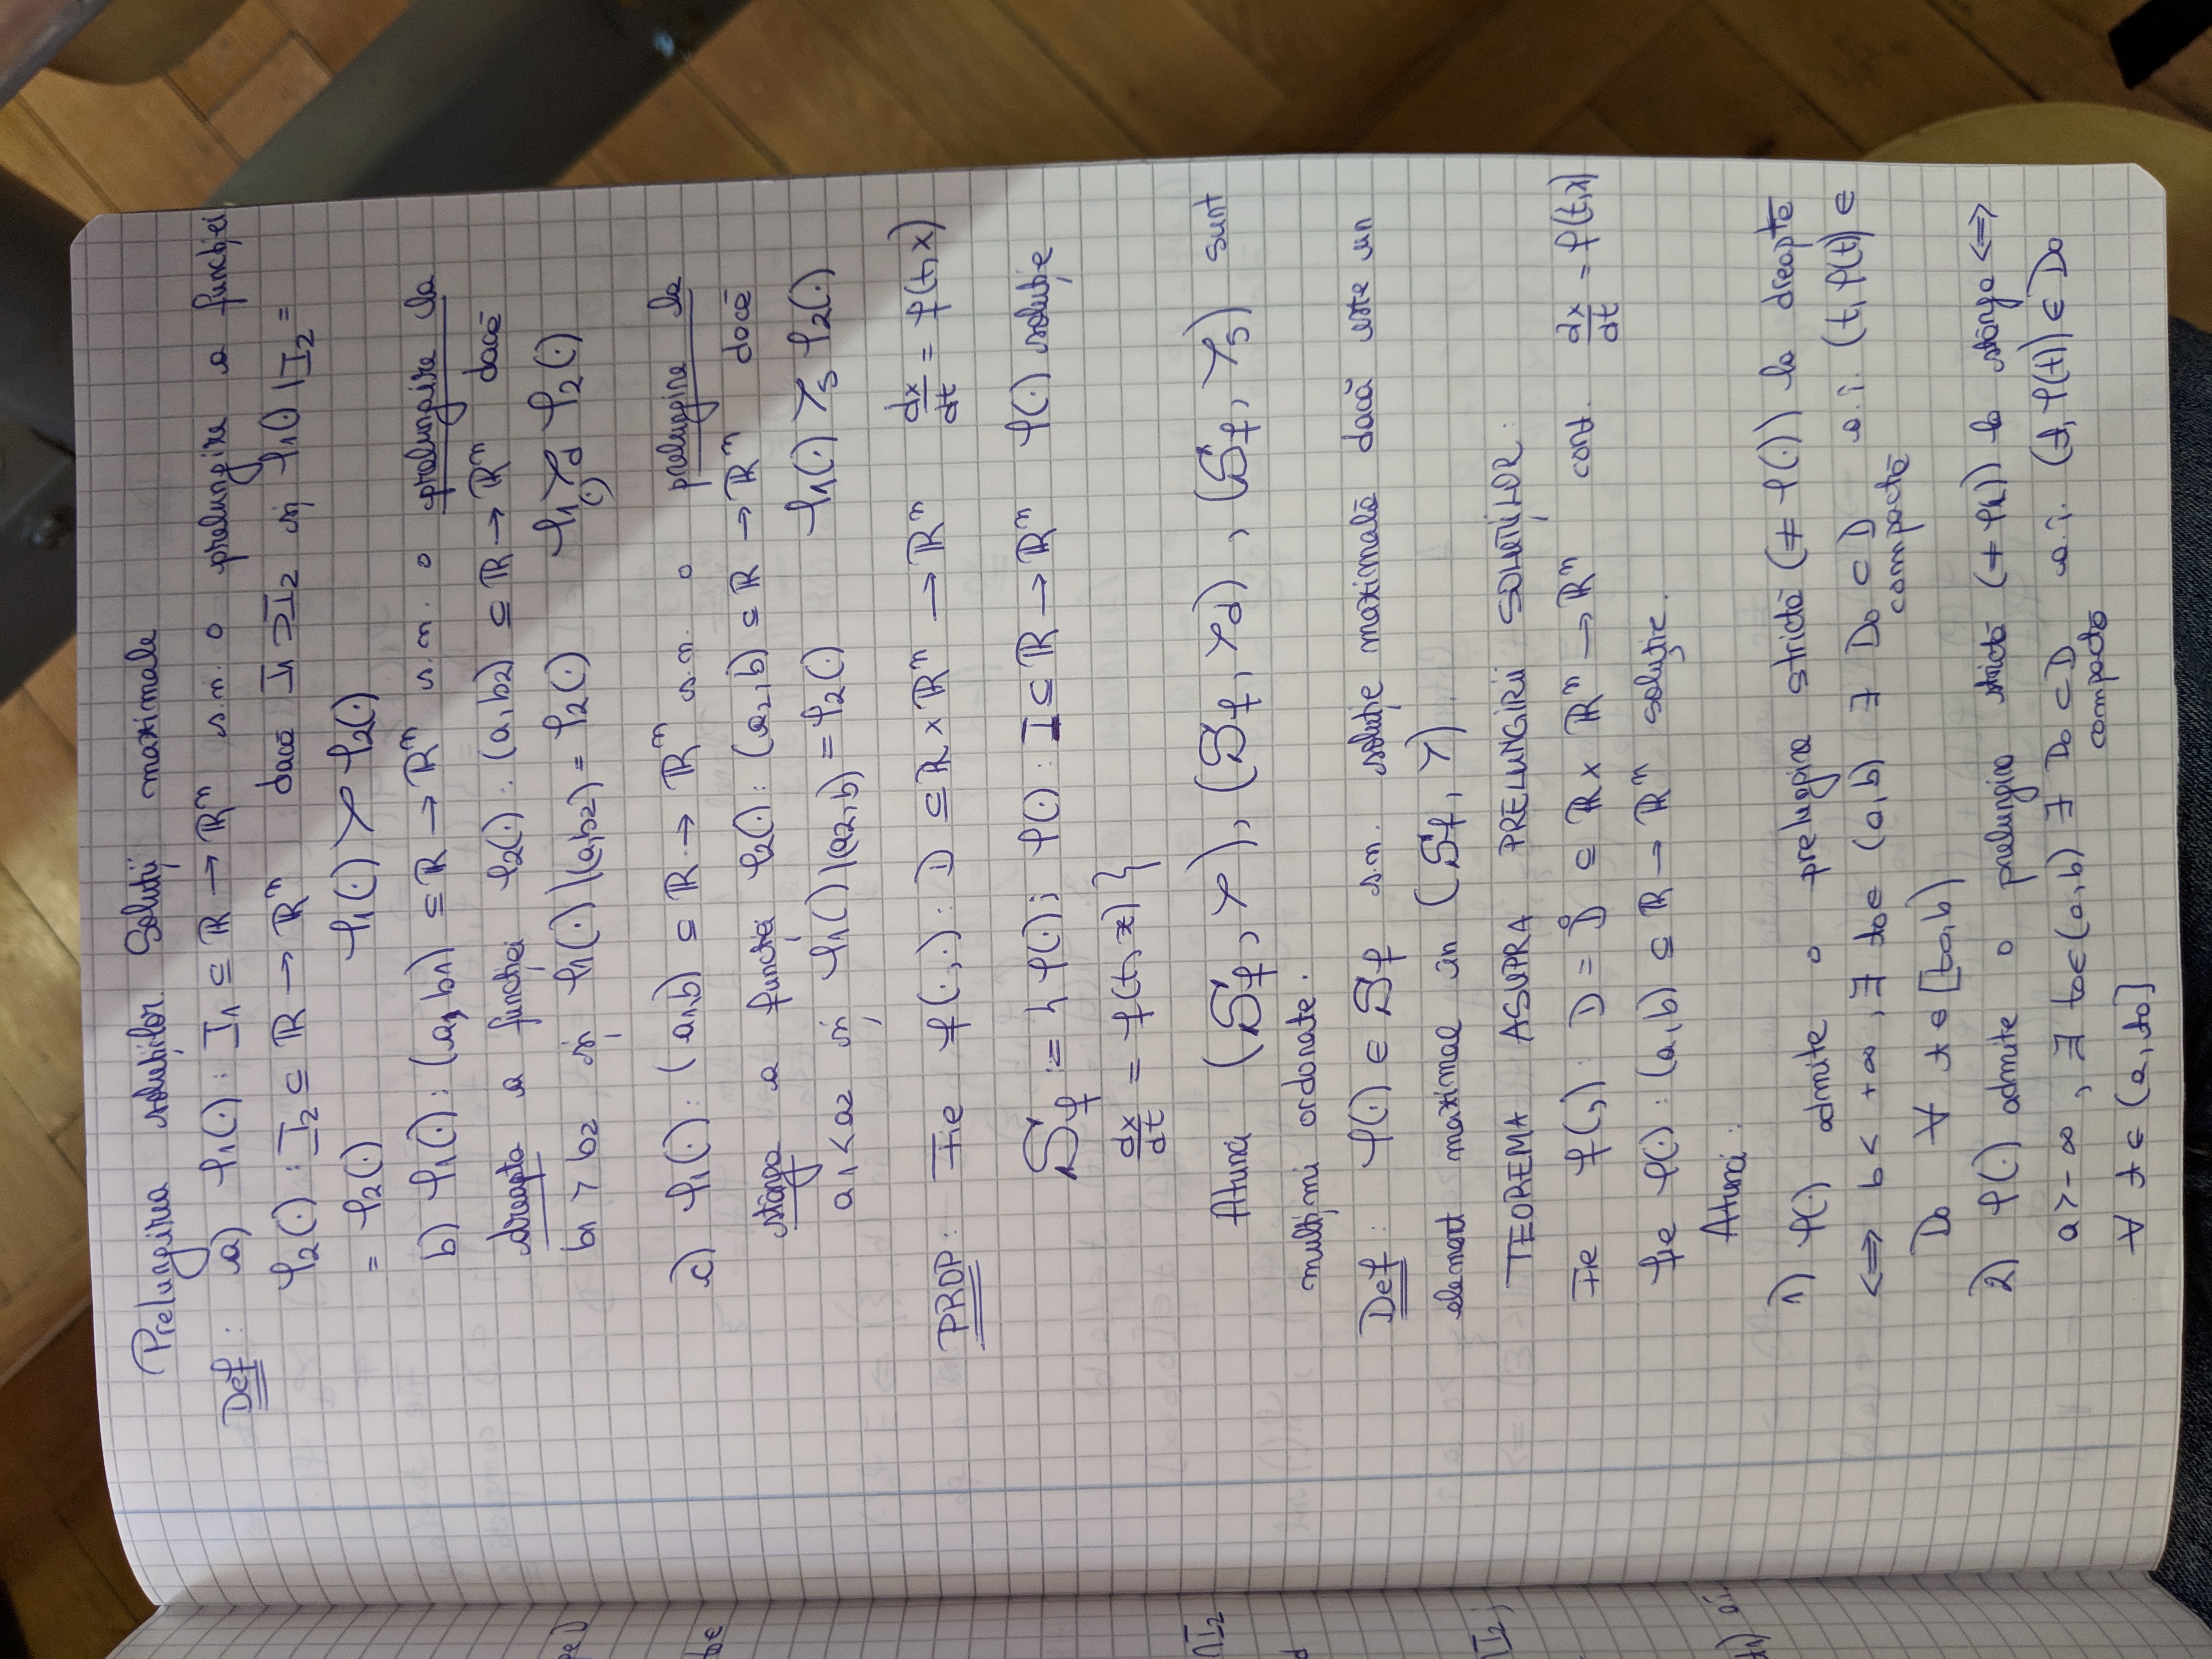 Prelungirea soluțiilor. Soluții maximale
Def: a) φ1(·) : I1 ⊆ ℝ → ℝⁿ s.n. o prelungire a funcției
φ2(·) : I2 ⊆ ℝ → ℝⁿ dacă I1 ⊃ I2 și φ1() |I2 =
= φ2(·) φ1(·) ≻ φ2(·)
b) φ1(·) : (a, b1) ⊆ ℝ → ℝⁿ s.n. o prelungire la
dreapta a funcției φ2(·) : (a, b2) ⊆ ℝ → ℝⁿ dacă
b1 > b2 și φ1(·) |(a,b2) = φ2(·) φ1(·) ≻d φ2(·)
c) φ1(·) : (a1, b) ⊆ ℝ → ℝⁿ s.n. o prelungire la
stânga a funcției φ2(·) : (a2, b) ⊆ ℝ → ℝⁿ dacă
a1 < a2 și φ1() |(a2, b) = φ2(·) φ1(·) ≻s φ2(·)
PROP: Fie f(·,·) : D ⊆ ℝ × ℝⁿ → ℝⁿ dx/dt = f(t,x)
Sf := { φ(·); φ(·) : I ⊆ ℝ → ℝⁿ φ(·) soluție
dx/dt = f(t, x) }
Atunci (Sf, ≻), (Sf, ≻d), (Sf, ≻s) sunt
mulțimi ordonate.
Def: φ(·) ∈ Sf s.n. soluție maximală dacă este un
element maximal în (Sf, ≻).
TEOREMA ASUPRA PRELUNGIRII SOLUȚIILOR:
Fie f(,) : D = D̊ ⊆ ℝ × ℝⁿ → ℝⁿ cont. dx/dt = f(t,x)
fie φ(·) : (a, b) ⊆ ℝ → ℝⁿ soluție.
Atunci:
1) φ(·) admite o prelungire strictă (≠ φ(·)) la dreapta
⟺ b < +∞, ∃ t0 ∈ (a, b) ∃ D0 ⊂ D compactă a.î. (t, φ(t)) ∈
D0 ∀ t ∈ [t0, b)
2) φ(·) admite o prelungire strictă (≠ φ(·)) la stânga ⟺
a > -∞, ∃ t0 ∈ (a, b) ∃ D0 ⊂ D compactă a.î. (t, φ(t)) ∈ D0
∀ t ∈ (a, t0]